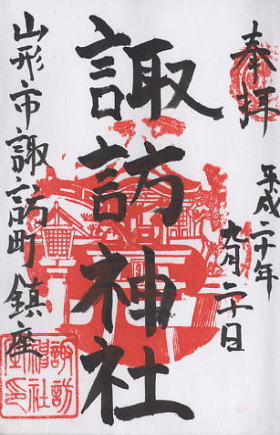 奉拝
平成二十年
九月二十日
諏訪神社
山形市諏訪町鎮座
諏訪
神社